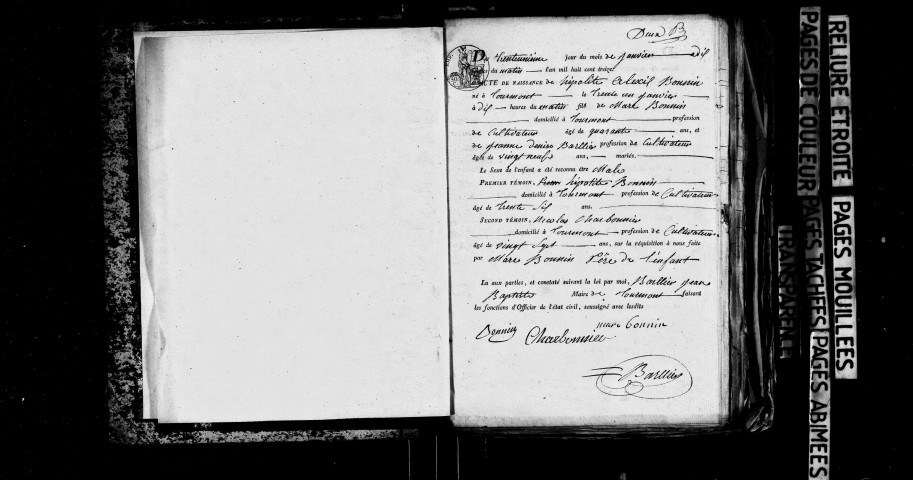 Deux B
Du trenteunime jour du mois de janvier dix
du matin l'an mil huit cent treize
ACTE DE NAISSANCE de hipolite Alexil Bonnin
né à Tourmont le trente un janvier
à dix heures du matin fils de Marc Bonnin
domicilié à Tourmont profession
de Cultivateur âgé de quarante ans, et
de jeanne denise Barllier profession de Cultivateur
âgée de vingt neufs ans, mariés.
Le Sexe de l'enfant a été reconnu être Male
PREMIER TÉMOIN, hipolite Bonnin
domicilié à Tourmont profession de Cultivateur
âgé de trente six ans.
SECOND TÉMOIN, Nicolas Charbonnier
domicilié à Tourmont profession de Cultivateur
âgé de vingt Sept ans, sur la réquisition à nous faite
par Marc Bonnin Père de l'enfant
Lu aux parties, et constaté suivant la loi par moi, Barllier jean
Baptiste Maire de Tourmont faisant
les fonctions d'Officier de l'état civil, soussigné avec lesdits
Bonnin marc bonnin
Charbonnier
Barllier
RELIURE ETROITE
PAGES MOUILLEES
PAGES DE COULEUR
PAGES TACHEES
PAGES ABIMEES
TRANSPARENCE